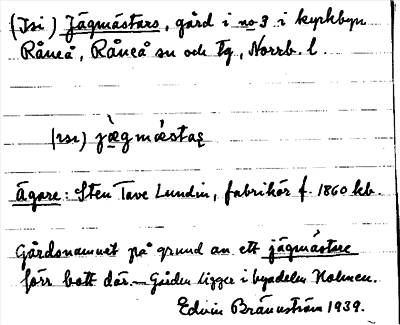 (Isi) Jägmästars, gård i no 3 i kyrkbyn
Råneå, Råneå sn och tg, Norrb. l.
(ɪsɪ) jæ̀gmǻstaȿ
Ägare: Sten Tave Lundin, fabrikör f. 1860 kb.
Gårdsnamnet på grund an ett jägmästare
förr bott där. — Gården ligger i byadelen Holmen.
Edvin Brännström 1939.